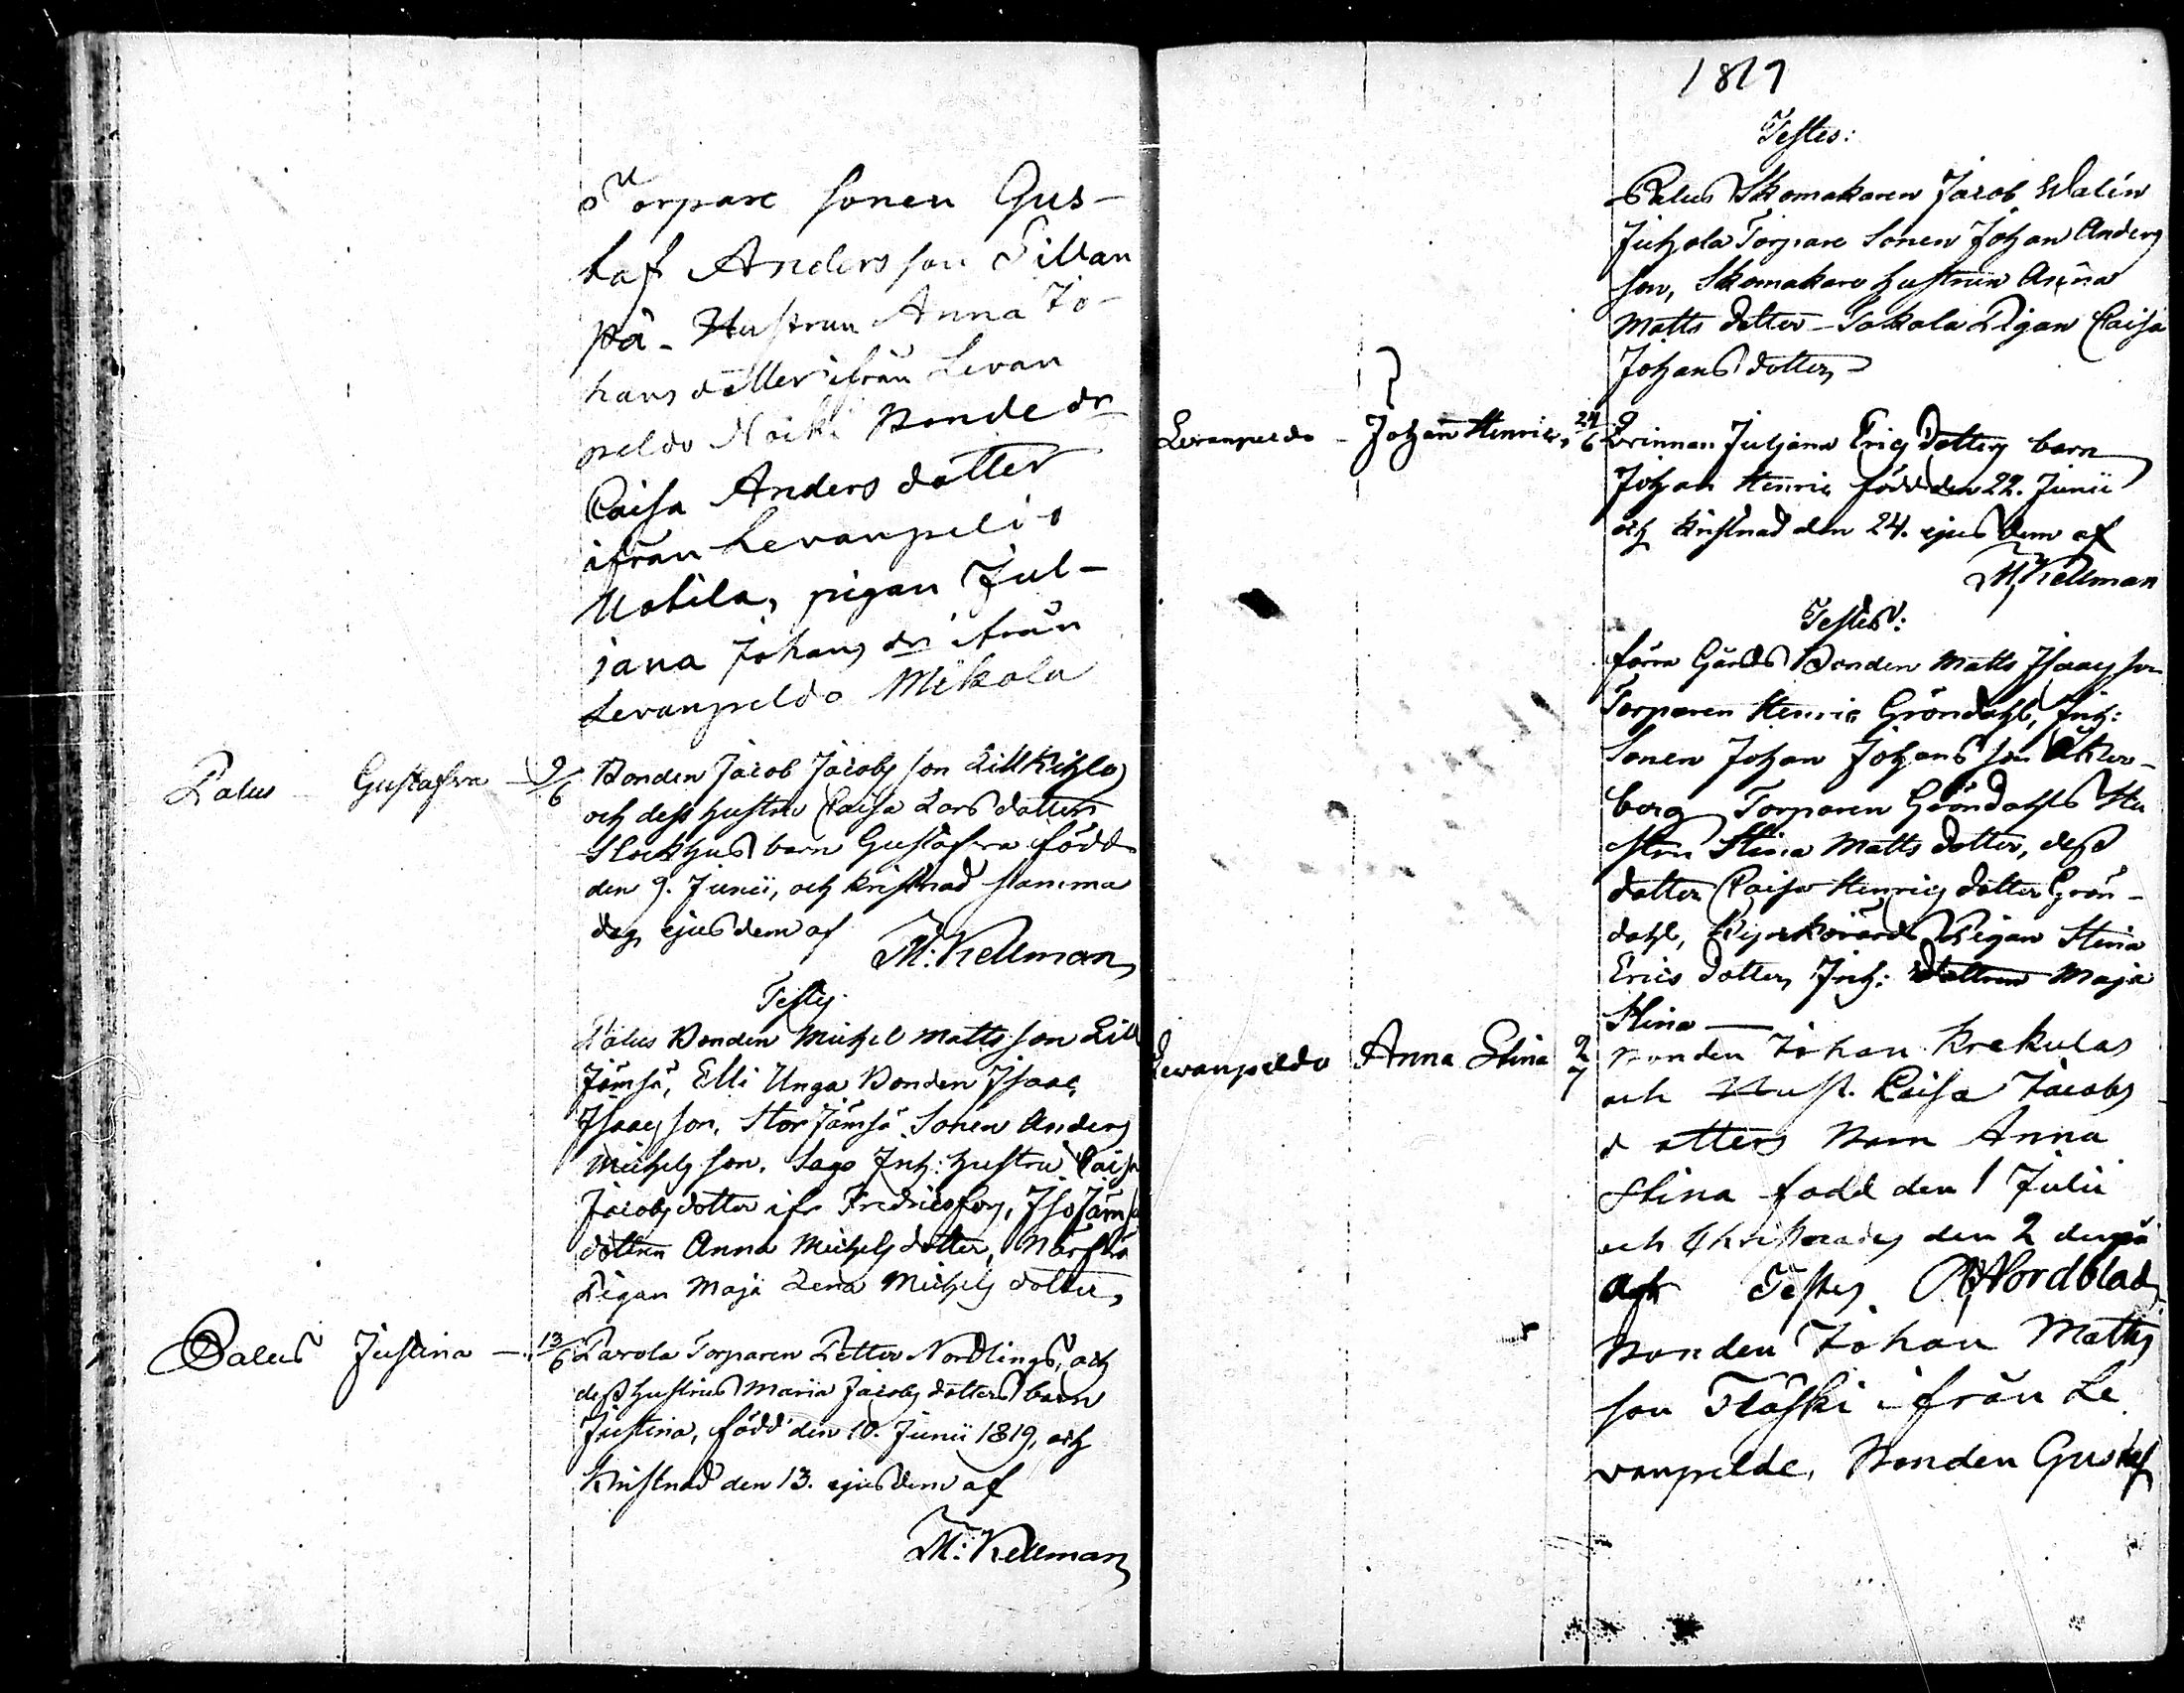 Torpare sonen Gus-
taf Andersson Sillan
pä - Hustrun Anna Jo-
hans dotter ifrån Levan
peldo Bonde dr
Caisa Anders dotter
ifrån Levanpeldo
Uotila, pigan Jul-
jana Johans dr ifrån
Levanpeldo Mikola
Palus Gustafva - 9/6 Bonden Jacob Jacobs son
och dess hustru Caisa Lars dotters
barn Gustafva född
den 9. Junii, och kristnad samma
dag ejusdem af
M: Kellman
Testes
Palus Bonden Michel Matts son Lill
Jämsä, Elli Unga Bonden Isaac
Isaacs son, Stor Jämsä Sonen Anders
Michels son, Inh: hustru Caisa
Jacobs dotter ifr Fredricsfors, Iso Jämsä
dottren Anna Michels dotter,
Pigan Maja Lena Michels dotter,
Palus Justina - 13/6 Parola Torparen Petter Nordlings, och
dess hustrus Maria Jacobs dotters barn
Justina, född den 10. Junii 1819, och
kristnad den 13. ejusdem af
M: Kellman
1819
Testes:
Palus Skomakaren Jacob Walén
Juhola Torpare Sonen Johan Anders
son, Skomakare hustrun Anna
Matts dotter - Pigan Caisa
Johans dotter
Levanpeldo - Johan Henric, 24/6 Qvinnan Juljana Erics dotters barn
Johan Henric född den 22. Junii
och kristnad den 24. ejusdem af
M: Kellman
Testes:
förra Gårds Bonden Matts Isaacs son
Torparen Henric Gröndahl, Inh:
Sonen Johan Johans son Åker-
berg Torparen Gröndahls Hu
stru Stina Matts dotter, dess
dotter Caisa Henrics dotter Grön-
dahl, Pigan Stina
Erics dotter, Inh: dottren Maja
Stina -
Levanpeldo Anna Stina 2/7 Bonden Johan Krekulas
och Hust. Caisa Jacobs
dotters Barn Anna
Stina född den 1 Julii
och Christnades den 2 derpå
af Testes Nordblad
Bonden Johan Matts
son Fläski ifrån Le
vanpelde, Bonden Gustaf